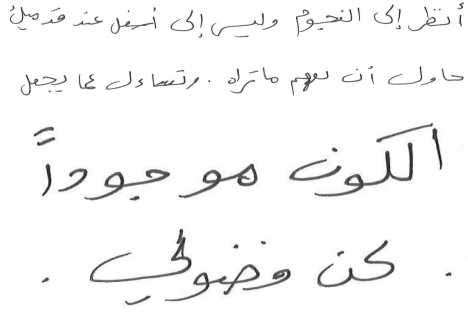 أنظر إلى النجوم وليس إلى أسفل عند قدميك
حاول أن تفهم ماتراه . وتساءل عما يجعل
الكون موجوداً
. كن فضولي .